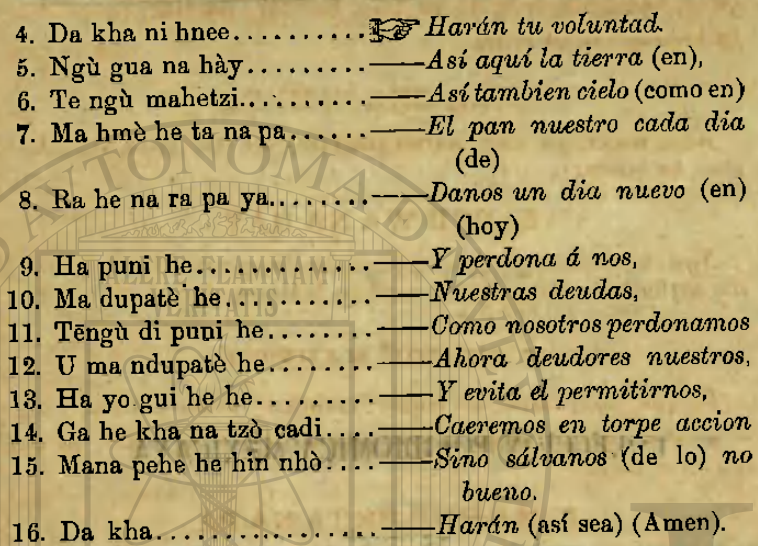 4. Da kha ni hnee..........☞ Harán tu voluntad.
5. Ngù gua na hày..........—Así aquí la tierra (en),
6. Te ngù mahetzi..........—Así tambien cielo (como en)
7. Ma hmè he ta na pa......—El pan nuestro cada dia
(de)
8. Ra he na ra pa ya........—Danos un dia nuevo (en)
(hoy)
9. Ha puni he.............—Y perdona á nos,
10. Ma dupatè he...........—Nuestras deudas,
11. Tēngù di puni he........—Como nosotros perdonamos
12. U ma ndupatè he........—Ahora deudores nuestros,
13. Ha yo gui he he.........—Y evita el permitirnos,
14. Ga he kha na tzò cadi....—Caeremos en torpe accion
15. Mana pehe he hin nhò....—Sino sálvanos (de lo) no
bueno.
16. Da kha.................—Harán (así sea) (Amen).